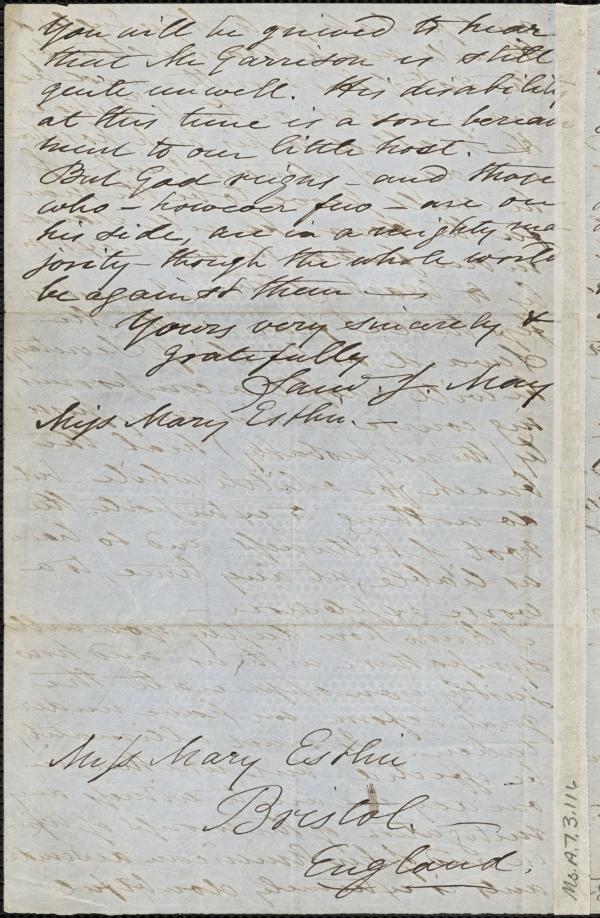 You will be grieved to hear
that Mr Garrison is still
quite unwell. His disability
at this time is a sore bereav
ment to our little host. —
But God reigns – and those
who – however few – are on
his side, are in a mighty ma
jority – though the whole world
be against them —
Yours very sincerely &
gratefully
Saml. J. May
Miss Mary Estlin. —
Miss Mary Estlin
Bristol. —
England.
Ms.A.7.3.116